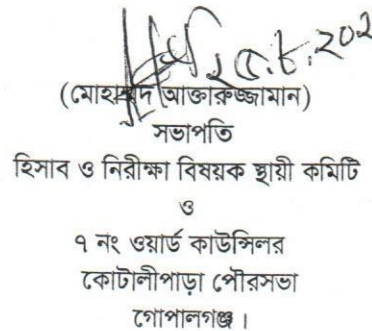 ২৫.৮.২০২
(মোহাম্মদ আক্তারুজ্জামান)
সভাপতি
হিসাব ও নিরীক্ষা বিষয়ক স্থায়ী কমিটি
ও
৭ নং ওয়ার্ড কাউন্সিলর
কোটালীপাড়া পৌরসভা
গোপালগঞ্জ।